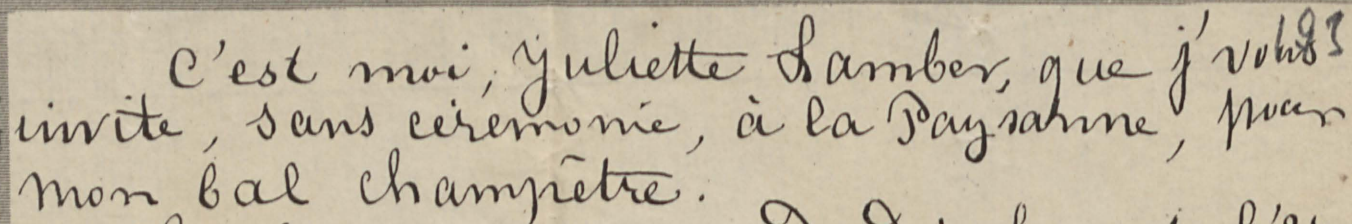 C'est moi, Juliette Lamber, que j'vous
invite, sans cérémonie, à la Paysanne, pour
mon bal champêtre.